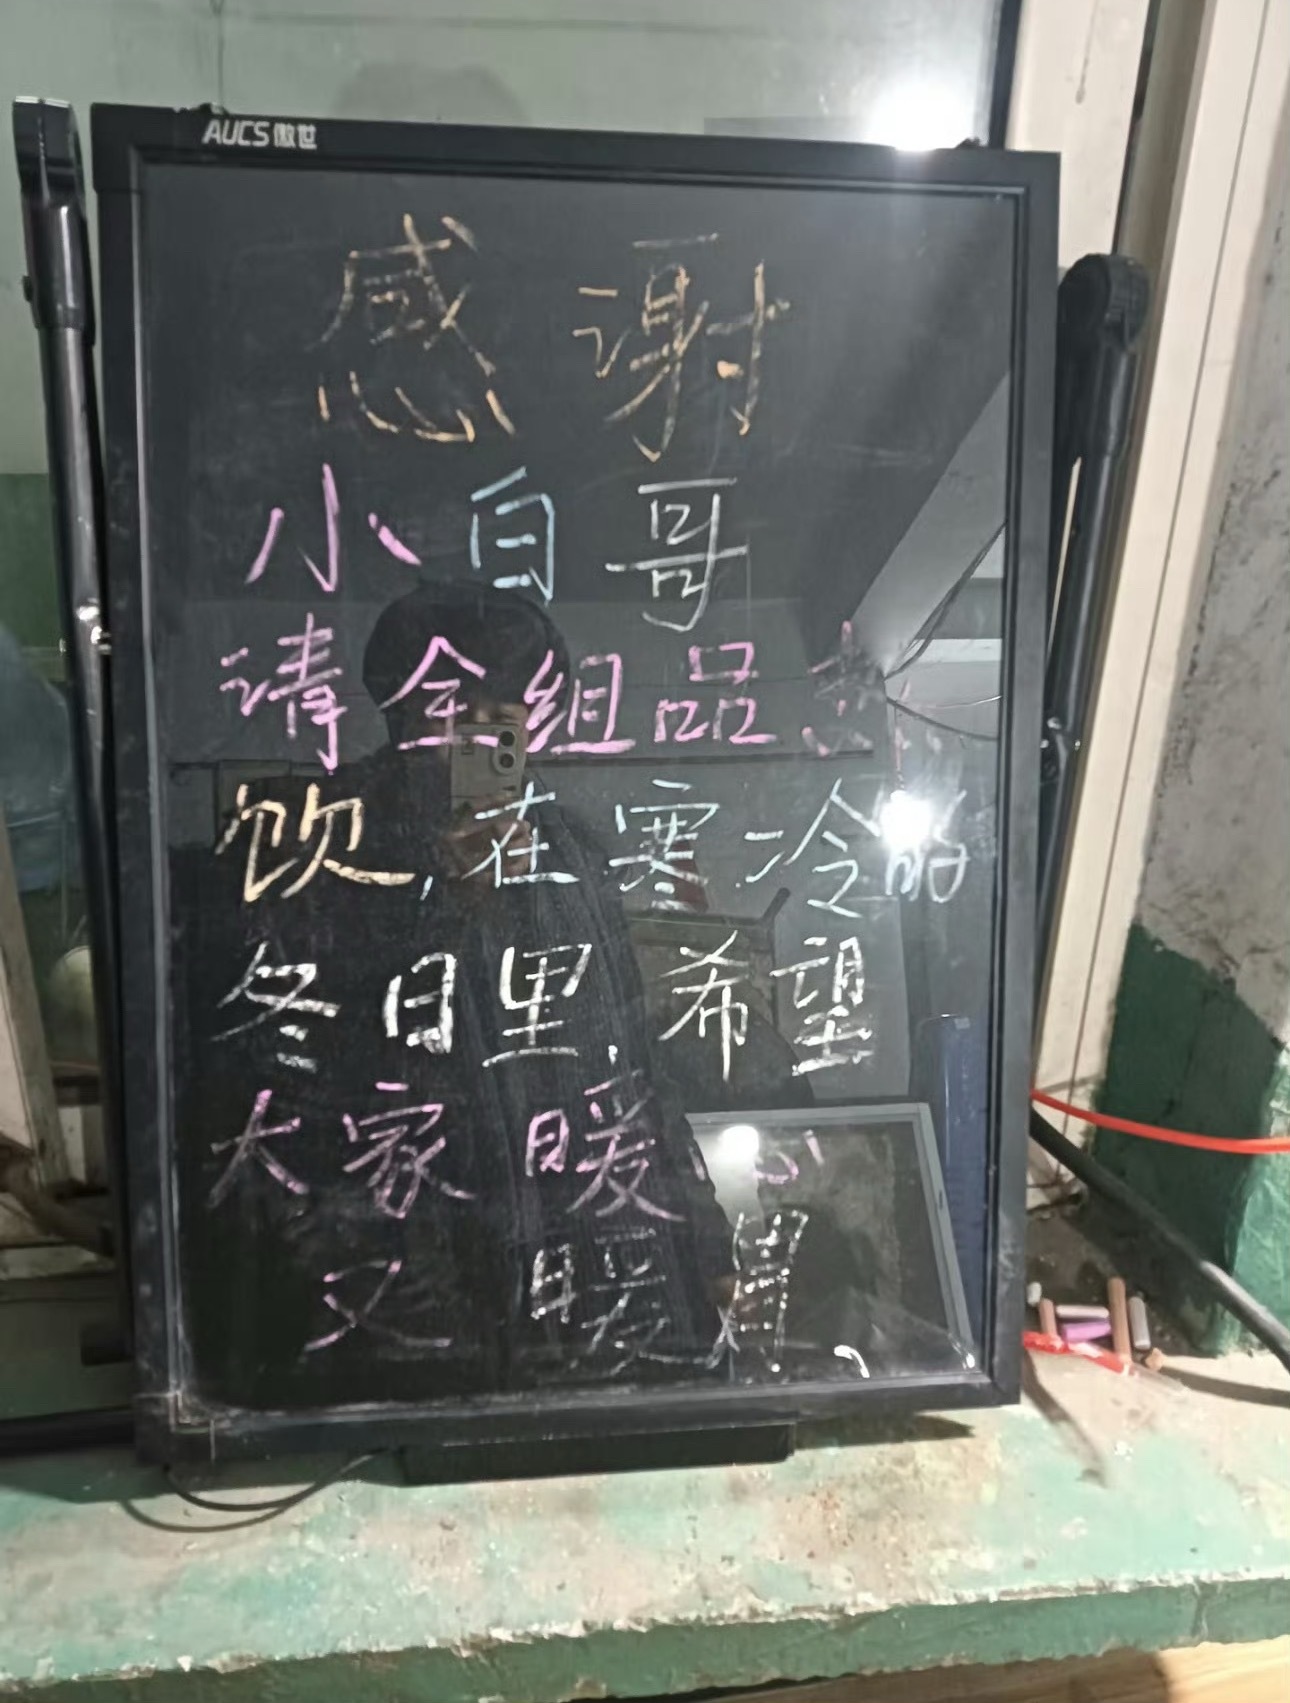 AUCS傲世
感谢
小白哥
请全组品热
饮,在寒冷的
冬日里,希望
大家暖心
又暖胃、